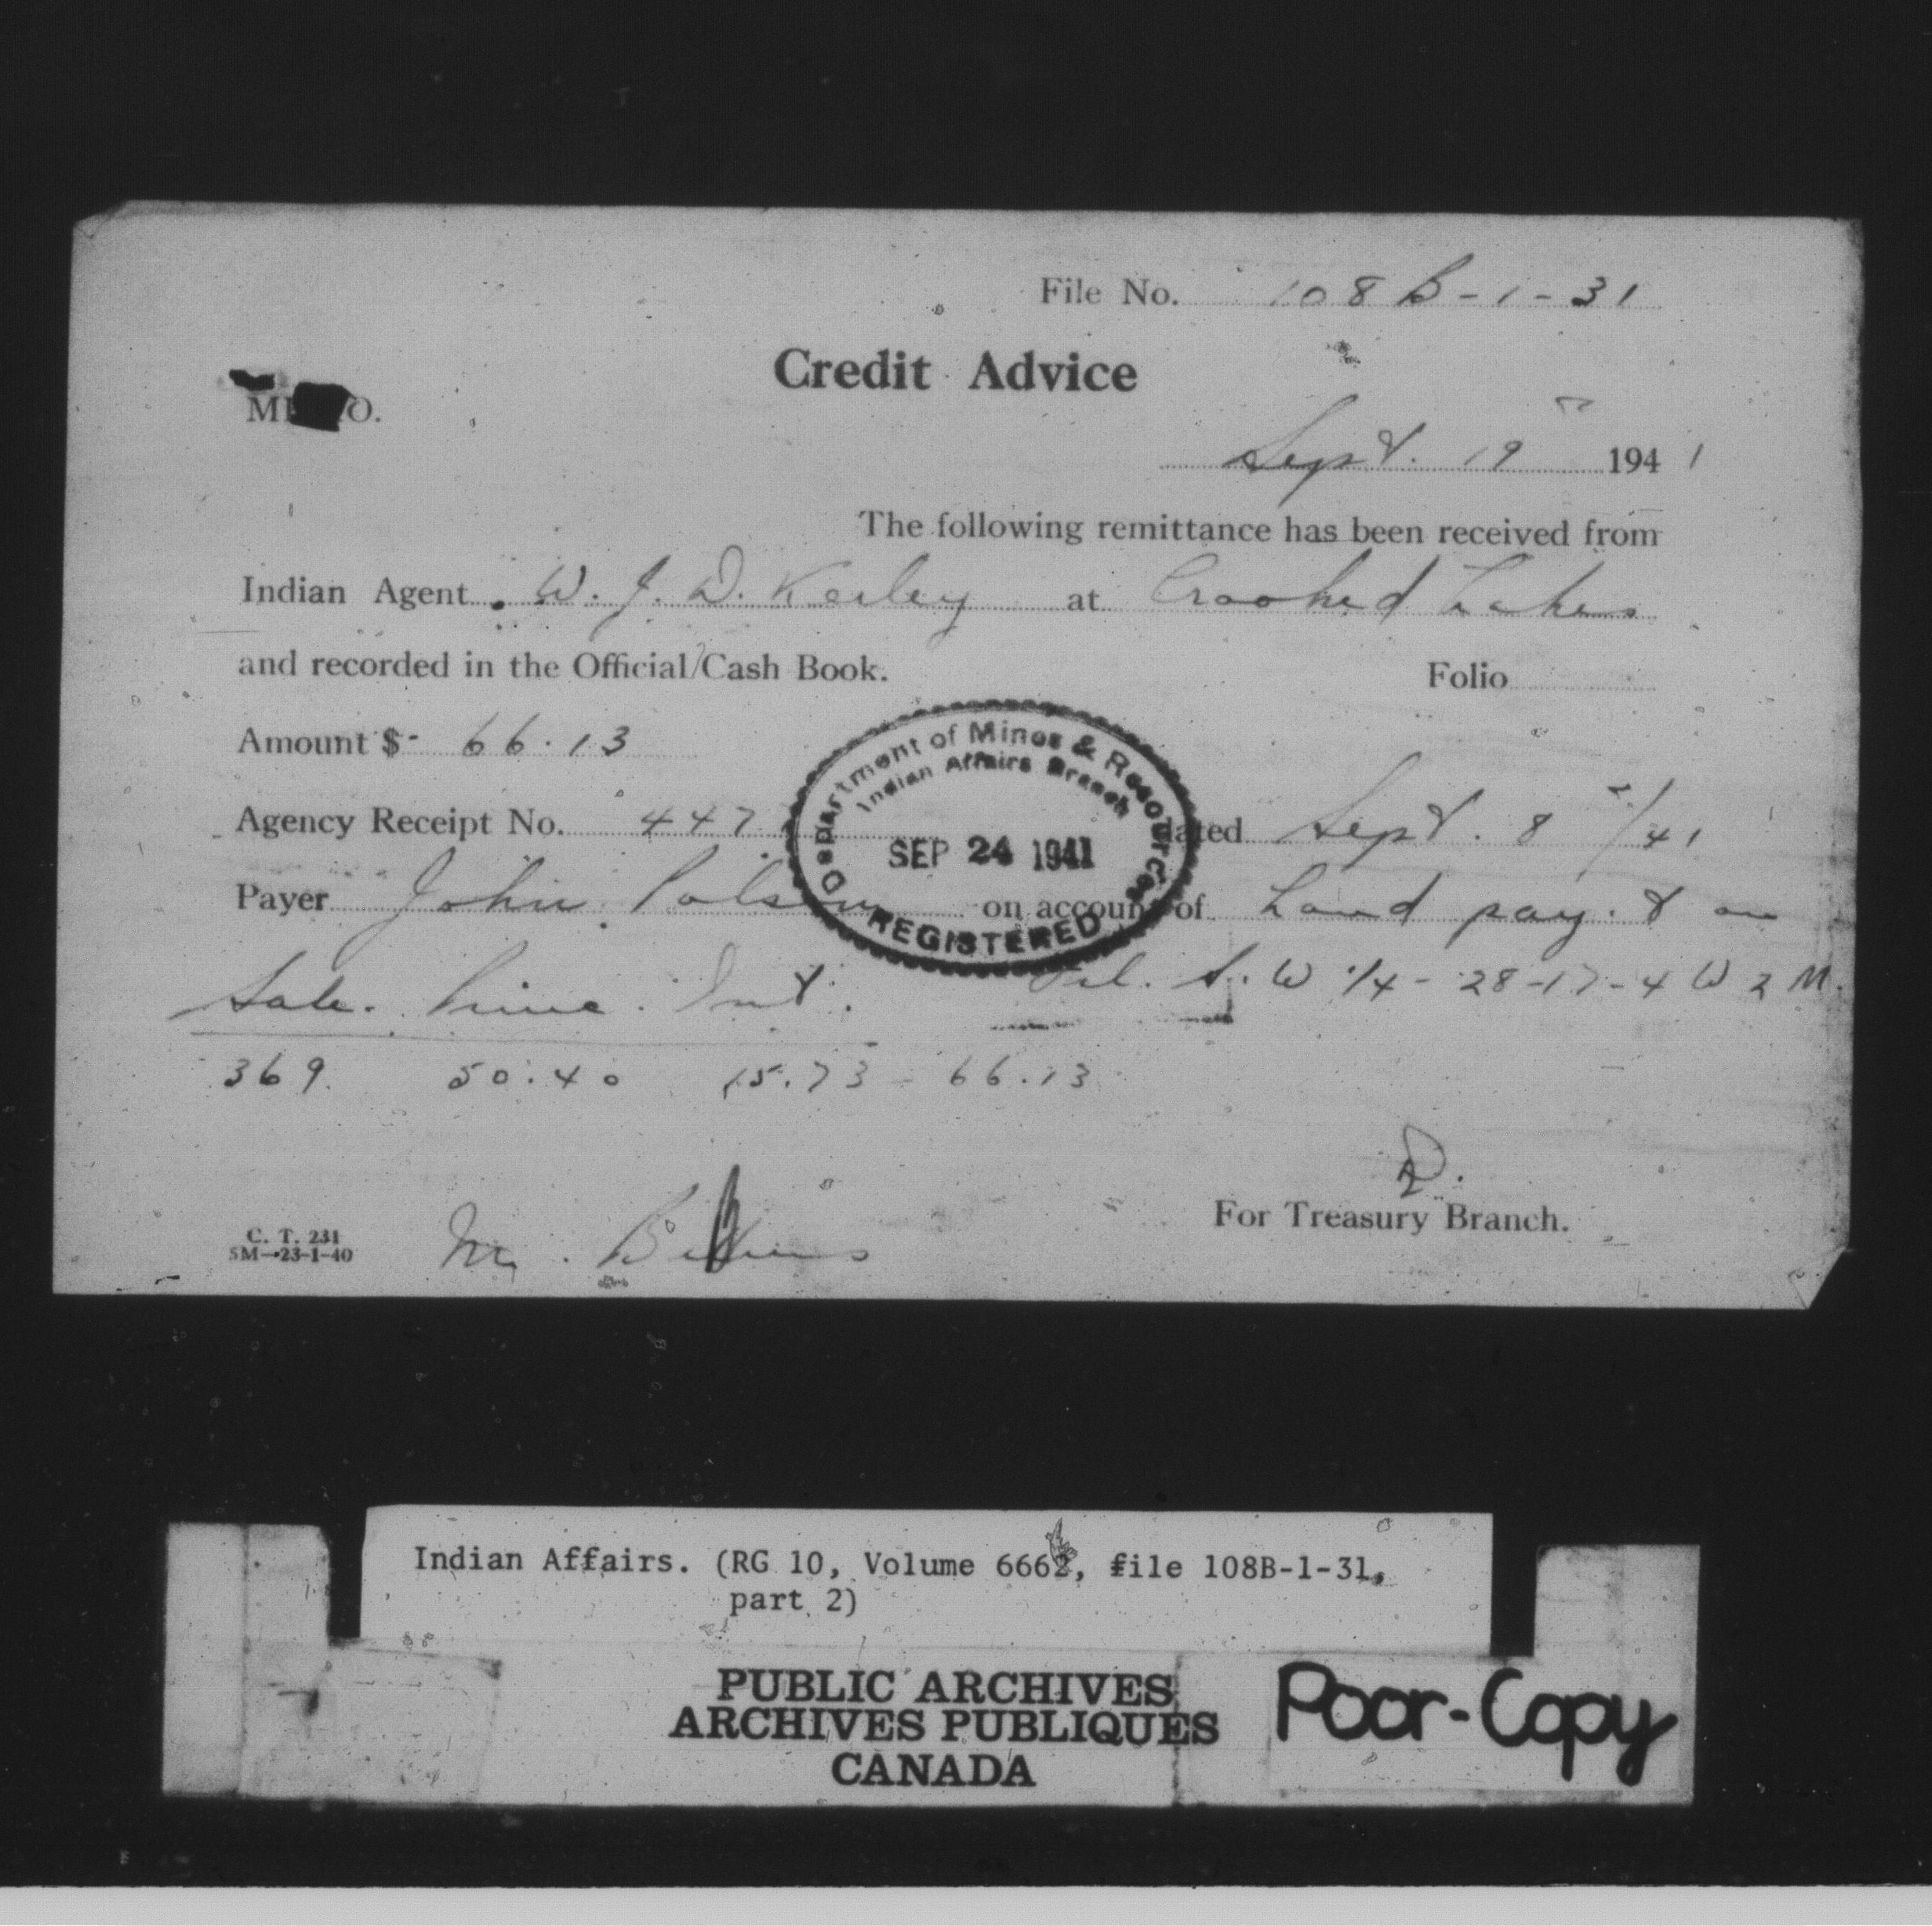 File No. 108 B-1-31
Credit Advice
MEMO.
Sept. 19 1941
The following remittance has been received from
Indian Agent W. J. D. Kerley at Crooked Lakes
and recorded in the Official Cash Book.
Folio
Amount $ 66.13
Agency Receipt No. 447 dated Sept. 8/41
Payer John Polson on account of Land pay't on
Sale. Princ. Int. S. W 1/4 - 28-17-4 W 2 M.
369 50.40 15.73 - 66.13
Department of Mines & Resources
Indian Affairs Branch
SEP 24 1941
REGISTERED
For Treasury Branch.
C. T. 231
5M-23-1-40
Indian Affairs. (RG 10, Volume 6662, file 108B-1-31,
part 2)
PUBLIC ARCHIVES
ARCHIVES PUBLIQUES
CANADA
Poor-Copy